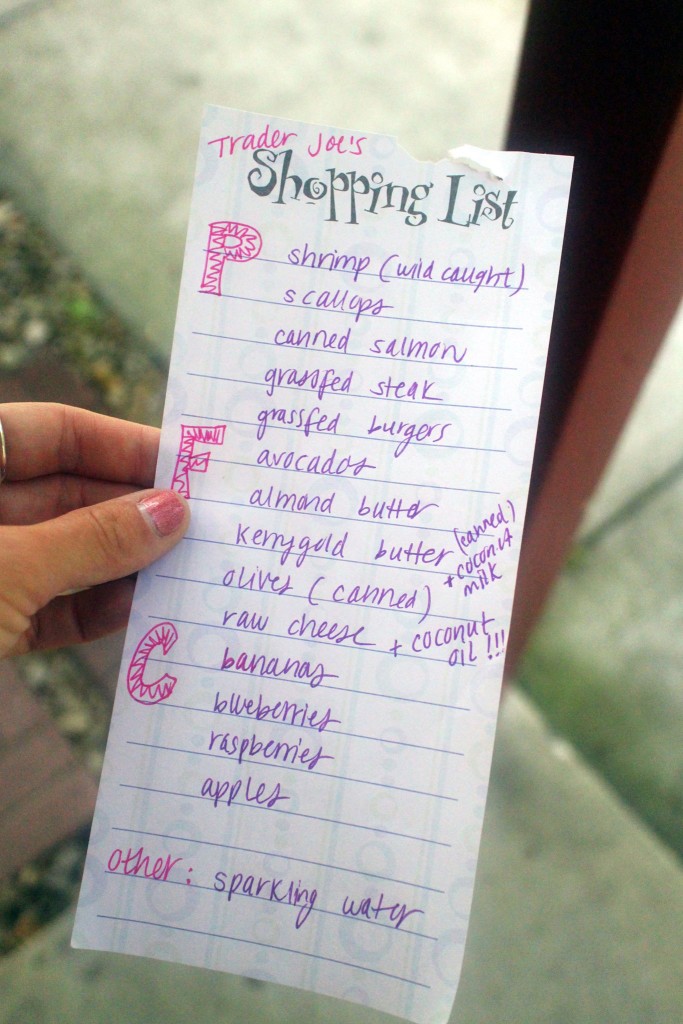 Trader Joe's
Shopping List
P
shrimp (wild caught)
scallops
canned salmon
grassfed steak
grassfed burgers
F
avocados
almond butter
Kerrygold butter
(canned)
+ coconut
milk
olives (canned)
raw cheese + coconut
oil!!!
C
bananas
blueberries
raspberries
apples
other: sparkling water